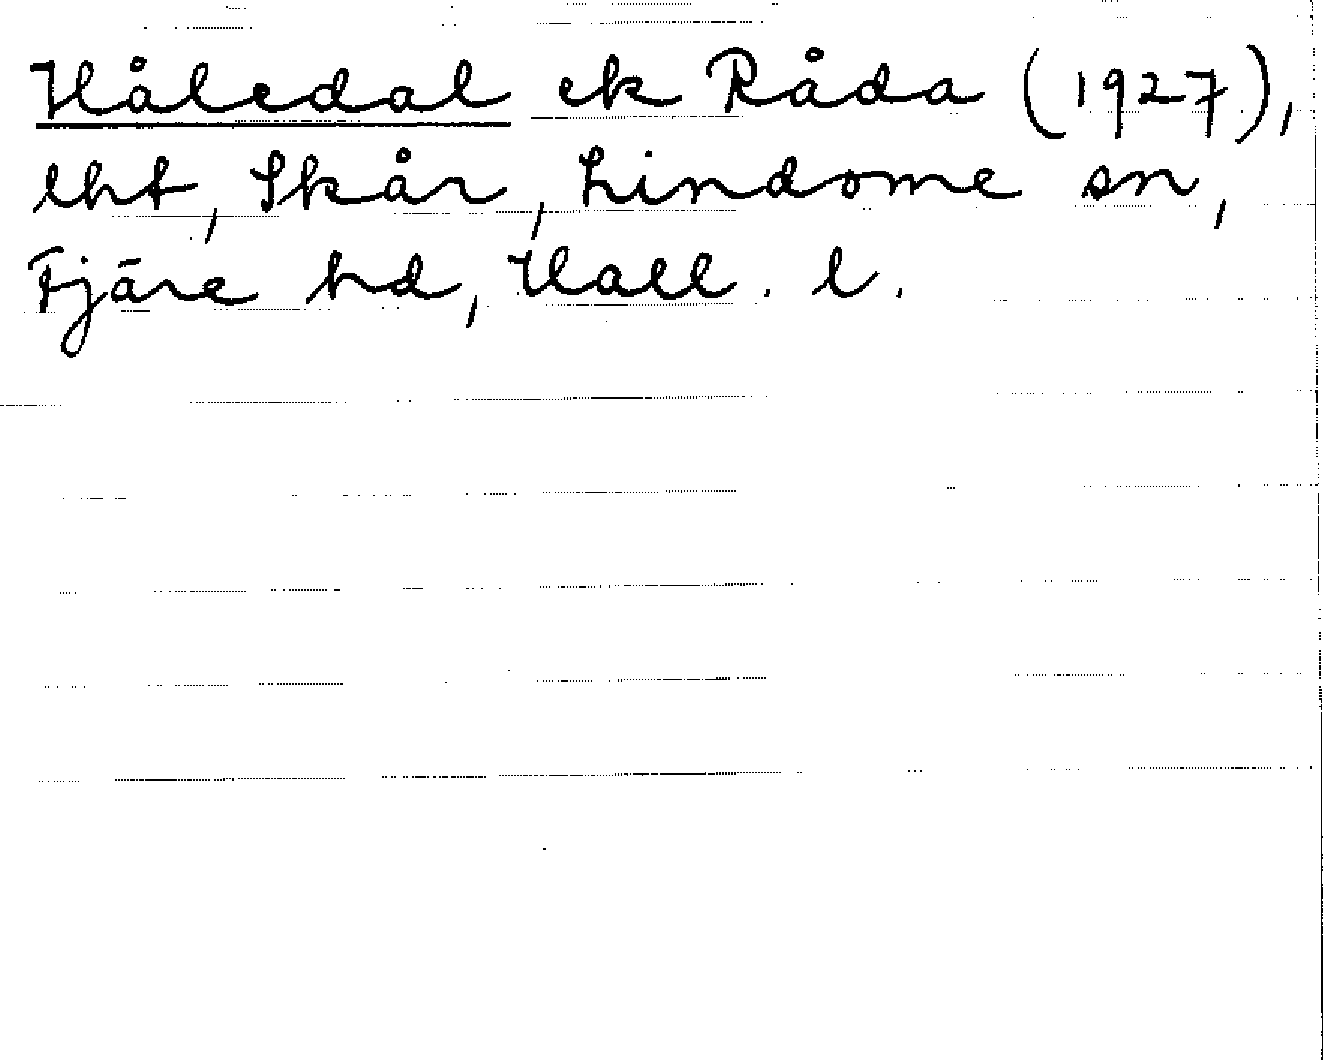 Håledal ek Råda (1927),
lht, Skår, Lindome sn,
Fjäre hd, Hall. l.